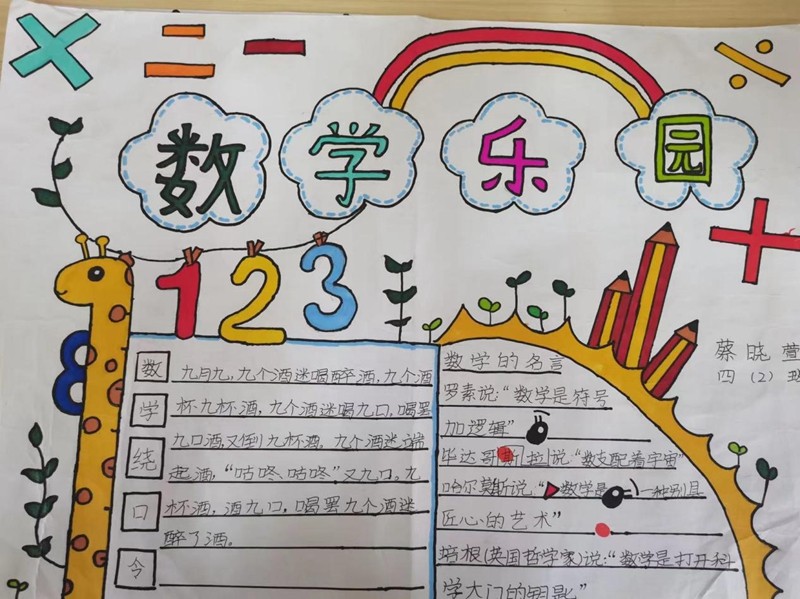 × = － ÷
数学乐园
+
1 2 3
8
蔡晓萱
四（2）班
数学绕口令
九月九，九个酒迷喝醉酒，九个酒
杯九杯酒，九个酒迷喝九口，喝罢
九口酒，又倒九杯酒，九个酒迷端
起酒，“咕咚、咕咚”又九口，九
杯酒，酒九口，喝罢九个酒迷
醉了酒。
数学的名言
罗素说：“数学是符号
加逻辑”
毕达哥斯拉说：“数支配着宇宙”
哈尔莫斯说：“数学是一种别具
匠心的艺术”
培根（英国哲学家）说：“数学是打开科
学大门的钥匙”